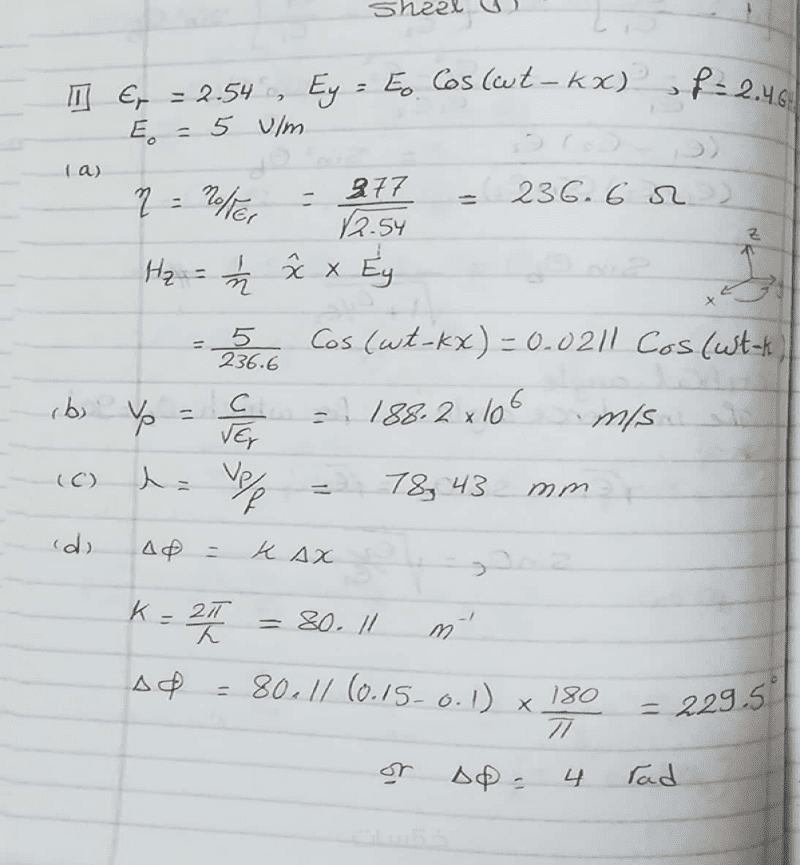 Sheet (1)
1 ϵr = 2.54 , Ey = E₀ Cos(ωt - kx) , f = 2.4 G
E₀ = 5 V/m
(a)
η = η₀/√ϵr = 377/√2.54 = 236.6 Ω
z
Hz = 1/η x̂ × Ey
x
= 5/236.6 Cos(ωt-kx) = 0.0211 Cos(ωt-k
(b) Vp = C/√ϵr = 188.2 x 10⁶ m/s
(c) λ = Vp/f = 78,43 mm
(d) ΔΦ = k Δx
k = 2π/λ = 80.11 m⁻¹
ΔΦ = 80.11 (0.15 - 0.1) x 180/π = 229.5°
or ΔΦ = 4 rad